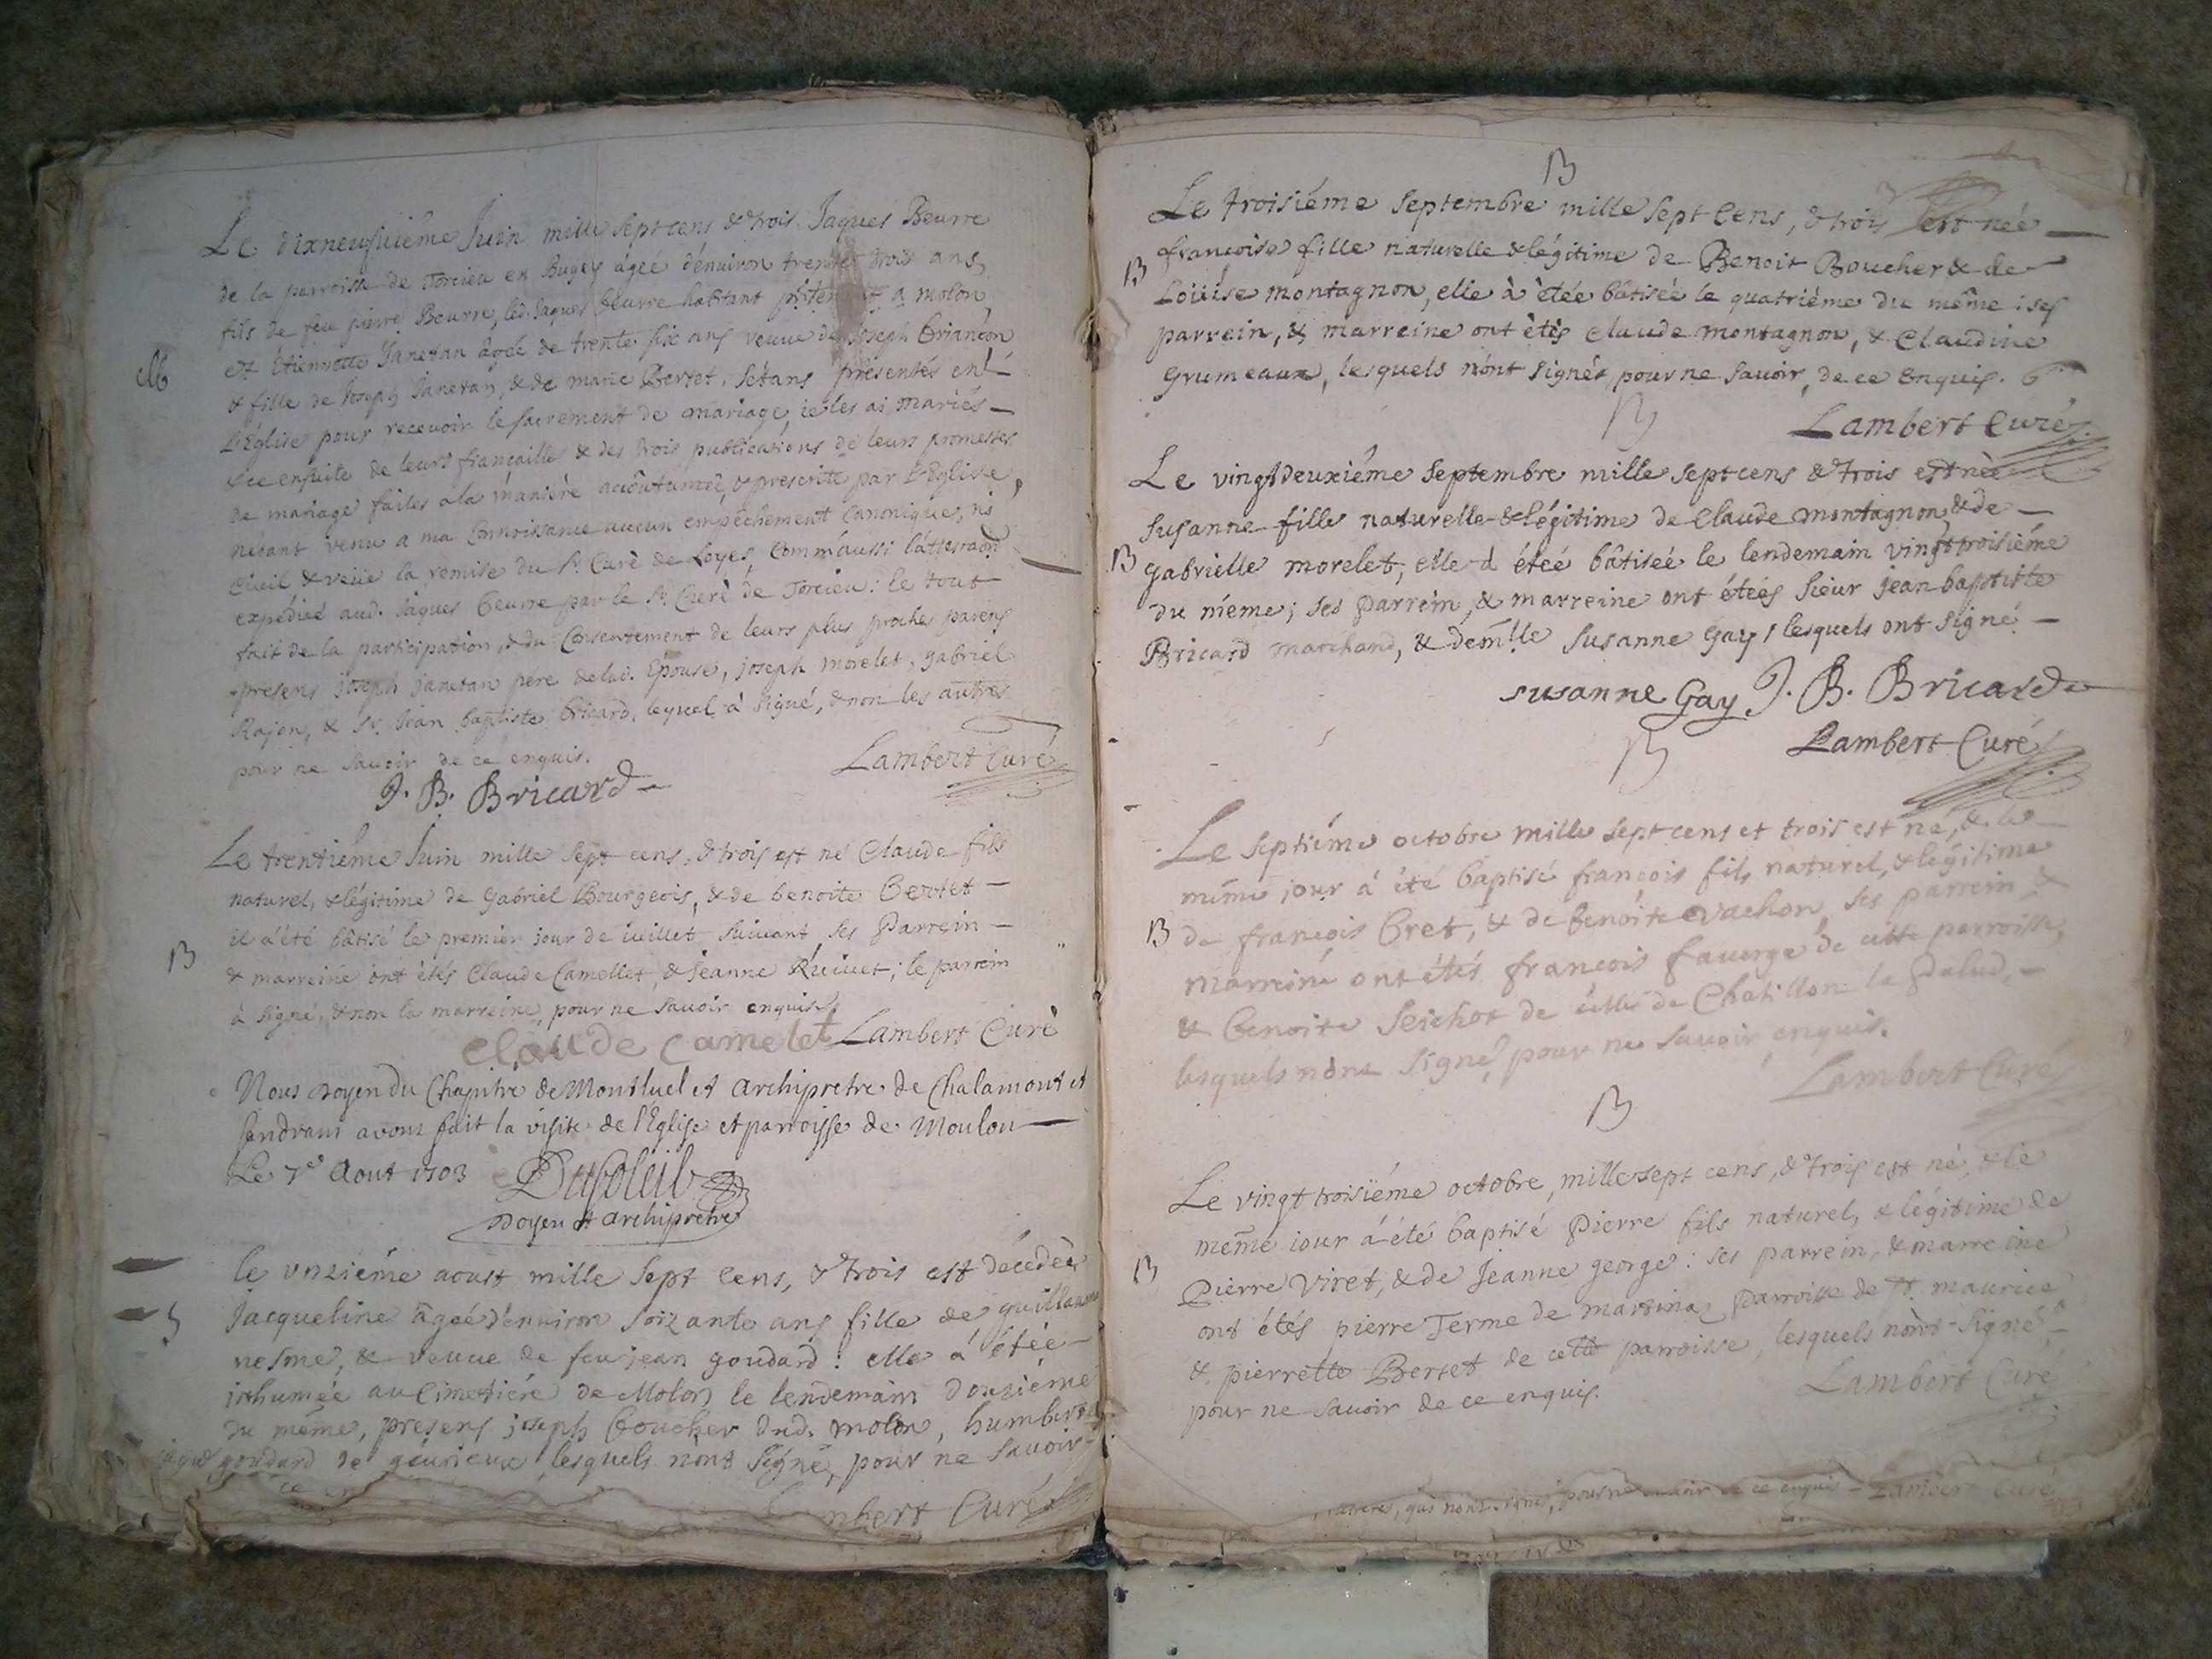 Le dixneufuiéme Juin mille sept cens & trois Jaques Beurre
de la parroisse de Torcieu en Bugey ágeé d'énuiron trente trois ans,
fils de feu pierre Beurre, led. Jaques beurre habitant a molon
et Étiennette Janetan ágeé de trente six ans veuue de Joseph briancon
M
& fille de Joseph Janetan, & de marie Bertet, sétans présentés en
l'Église pour receuoir le sacrement de mariage, ie les ai mariés
& ce ensuite de leurs fiancailles & des trois publications de leurs promesses
de mariage faites a la maniére accoutumeé, & prescritte par l'Eglise,
nétant venu a ma Connoissance aucun empêchement Canonique, ni
Ciuil & veüe la remise du Sr. Curé de Loyes, Comm'aussi l'attestaõn
expédieé aud. Jaques beurre par le Sr. Curé de Torcieu: le tout
fait de la participation, & du Consentement de leurs plus proches parens
presens joseph janetan pere delad. Epouse, joseph morelet, gabriel
Rojon, & Sr. Jean baptiste bricard, lequel à signé, & non les autres
pour ne sauoir de ce enquis.
Lambert Curé
J. B. Bricard
Le trentiéme Juin mille sept cens, & trois est né Claude fils
naturel, & légitime de gabriel Bourgeois, & de benoite bertet
il a'été bâtisé le premier iour de iuillet suiuant, ses Parrein
B
& marreine ont étés Claude Camellet, & Jeanne Ruiuet; le parrein
à signé, & non la marreine, pour ne sauoir enquise
claude camelet Lambert Curé
Nous Doyen du Chapitre de Montluel et archipretre de Chalamont et
Sandrans avons fait la visite de l'Eglise et parroisse de Moulon
Le 7e Aout 1703 Dusoleil
Doyen et archipretre
le vnziéme aoust mille sept cens, & trois est décédeé
Jacqueline ágeé d'enuiron soizante ans fille de guillaume
nesme, & veuue de feu jean goudard: elle a étée
inhumée au Cimetiére de Molon le lendemain douziéme
du même, presens joseph boucher dud. molon, humbert
goudard de géurieux lesquels n'ont signé, pour ne sauoir
ce
Lambert Curé
B
Le troisiéme septembre mille sept cens, & trois est née
francoise fille naturelle & légitime de Benoit Boucher & de
B
Loüise montagnon, elle à étée bâtiseé le quatriéme du même; ses
parrein, & marreine ont étés Claude montagnon, & Claudine
Grumeaux, lesquels n'ont signés, pour ne sauoir, de ce enquis.
B
Lambert Curé
Le vingtdeuxiéme septembre mille sept cens & trois est née
susanne fille naturelle & légitime de Claude montagnon, & de
B
gabrielle morelet, elle à éteé bâtiseé le lendemain vingt troisiéme
du même; ses parrein, & marreine ont éteés sieur jean baptiste
Bricard marchand, & demlle susanne Gay, lesquels ont signé
susanne Gay J. B. Bricard
B
Lambert Curé
Le septiéme octobre mille sept cens et trois est né, & le
même jour á été baptisé francois fils naturel, & légitime
B
de francois bret, & de benoite vachon, ses parrein, &
marreine ont étés francois fauerge de cette parroisse,
& benoite Seichot de celle de Chatillon la Palud,
lesquels n'ont signé, pour ne sauoir enquis.
Lambert Curé
B
Le vingt troisiéme octobre, mille sept cens, & trois est né, & le
même iour á été baptisé Pierre fils naturel, & légitime de
B
Pierre Viret, & de Jeanne george: ses parrein, & marreine
ont étés pierre Terme de martinaz parroisse de St. maurice
& pierrette Bertet de cette parroisse, lesquels n'ont signé
pour ne sauoir de ce enquis.
Lambert Curé
qui n'ont signé, pour ne sauoir de ce enquis Lambert Curé